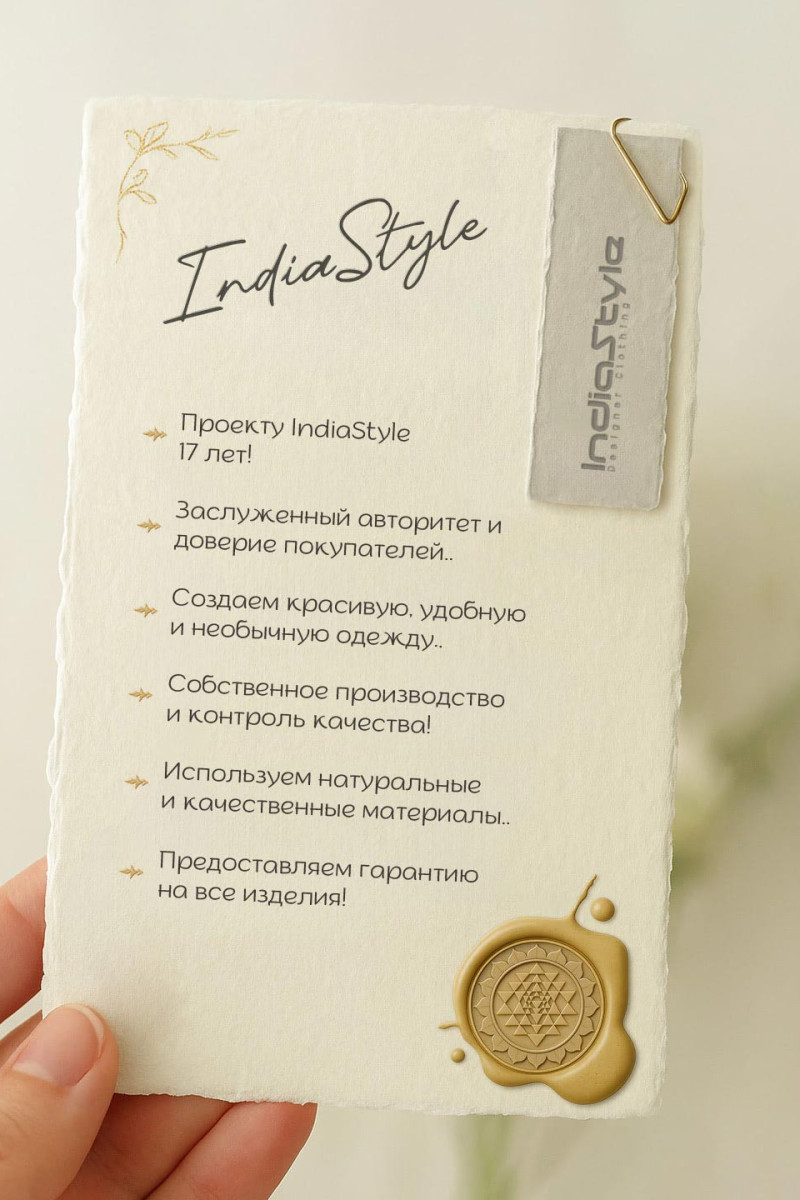 IndiaStyle
IndiaStyle
Designer Clothing
Проекту IndiaStyle
17 лет!
Заслуженный авторитет и
доверие покупателей..
Создаем красивую, удобную
и необычную одежду..
Собственное производство
и контроль качества!
Используем натуральные
и качественные материалы..
Предоставляем гарантию
на все изделия!